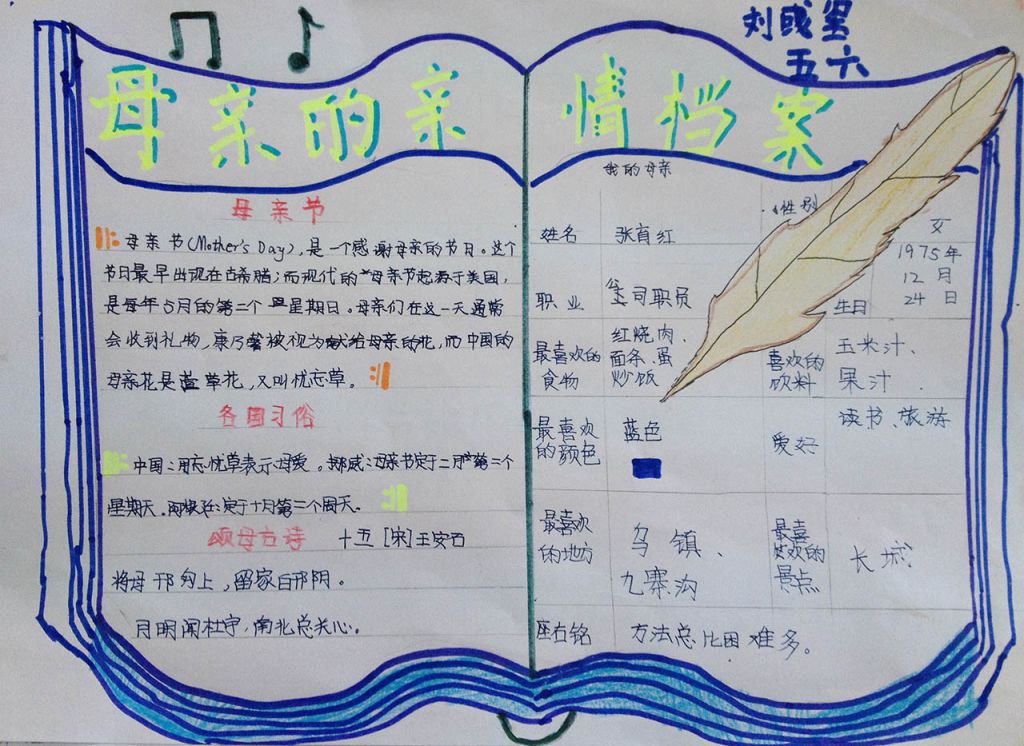 刘彧
五六
母亲的亲情档案
母亲节
母亲节(Mother's Day),是一个感谢母亲的节日。这个
节日最早出现在古希腊;而现代的母亲节起源于美国,
是每年5月的第二个星期日。母亲们在这一天通常
会收到礼物,康乃馨被视为献给母亲的花,而中国的
母亲花是萱草花,又叫忧忘草。
各国习俗
中国:用忘忧草表示母爱。挪威:母亲节定于二月第二个
星期天。阿根廷:定于十月第二个周天。
颂母古诗 十五 [宋]王安石
将母邗沟上,留家白邗阴。
月明闻杜宇,南北总关心。
我的母亲
姓名 张育红 性别 女
职业 公司职员 生日 1975年
12月
24日
最喜欢的
食物
红烧肉、
面条、蛋
炒饭
喜欢的
饮料
玉米汁、
果汁.
最喜欢
的颜色
蓝色
爱好
读书、旅游
最喜欢
的地方
乌镇、
九寨沟
最喜
欢的
景点
长城
座右铭 方法总比困难多。